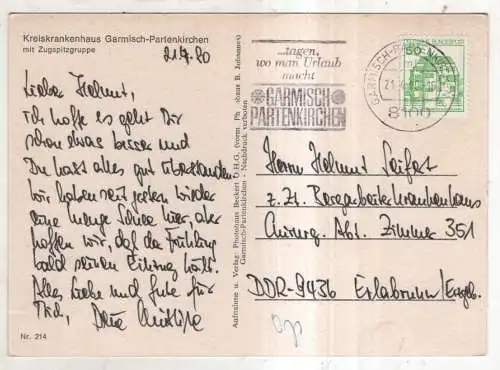 Kreiskrankenhaus Garmisch-Partenkirchen
mit Zugspitzgruppe
21.4.80
Lieber Helmut,
ich hoffe es geht Dir
schon etwas besser und
Du hast alles gut überstanden
wir haben seit gestern wieder
eine Menge Schnee hier, aber
hoffen wir, daß der Frühling
bald seinen Einzug hält.
Alles Liebe und Gute für
Dich, Deine
Nr. 214
Aufnahme u. Verlag: Photohaus Beckert O.H.G. (vorm. Photohaus B. Johannes)
Garmisch-Partenkirchen - Nachdruck verboten
...tagen,
wo man Urlaub
macht
GARMISCH
PARTENKIRCHEN
GARMISCH-PARTENKIRCHEN
8100
50
Herrn Helmut Seifert
z. Zt. Bergarbeiterkrankenhaus
Chirurg. Abt. Zimmer 351
DDR-9436 Erlabrunn/Erzgeb.